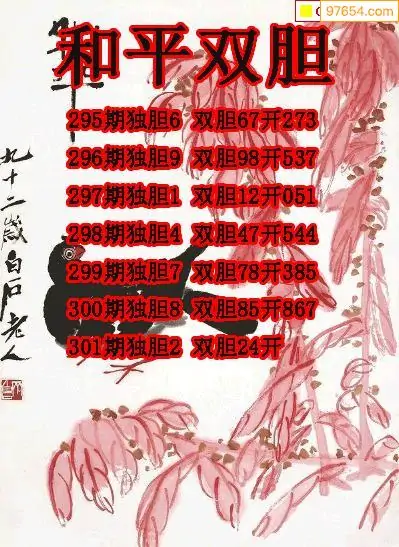 97654.com
和平双胆
295期独胆6 双胆67开273
296期独胆9 双胆98开537
297期独胆1 双胆12开051
298期独胆4 双胆47开544
299期独胆7 双胆78开385
300期独胆8 双胆85开867
301期独胆2 双胆24开
九十二歲白石老人